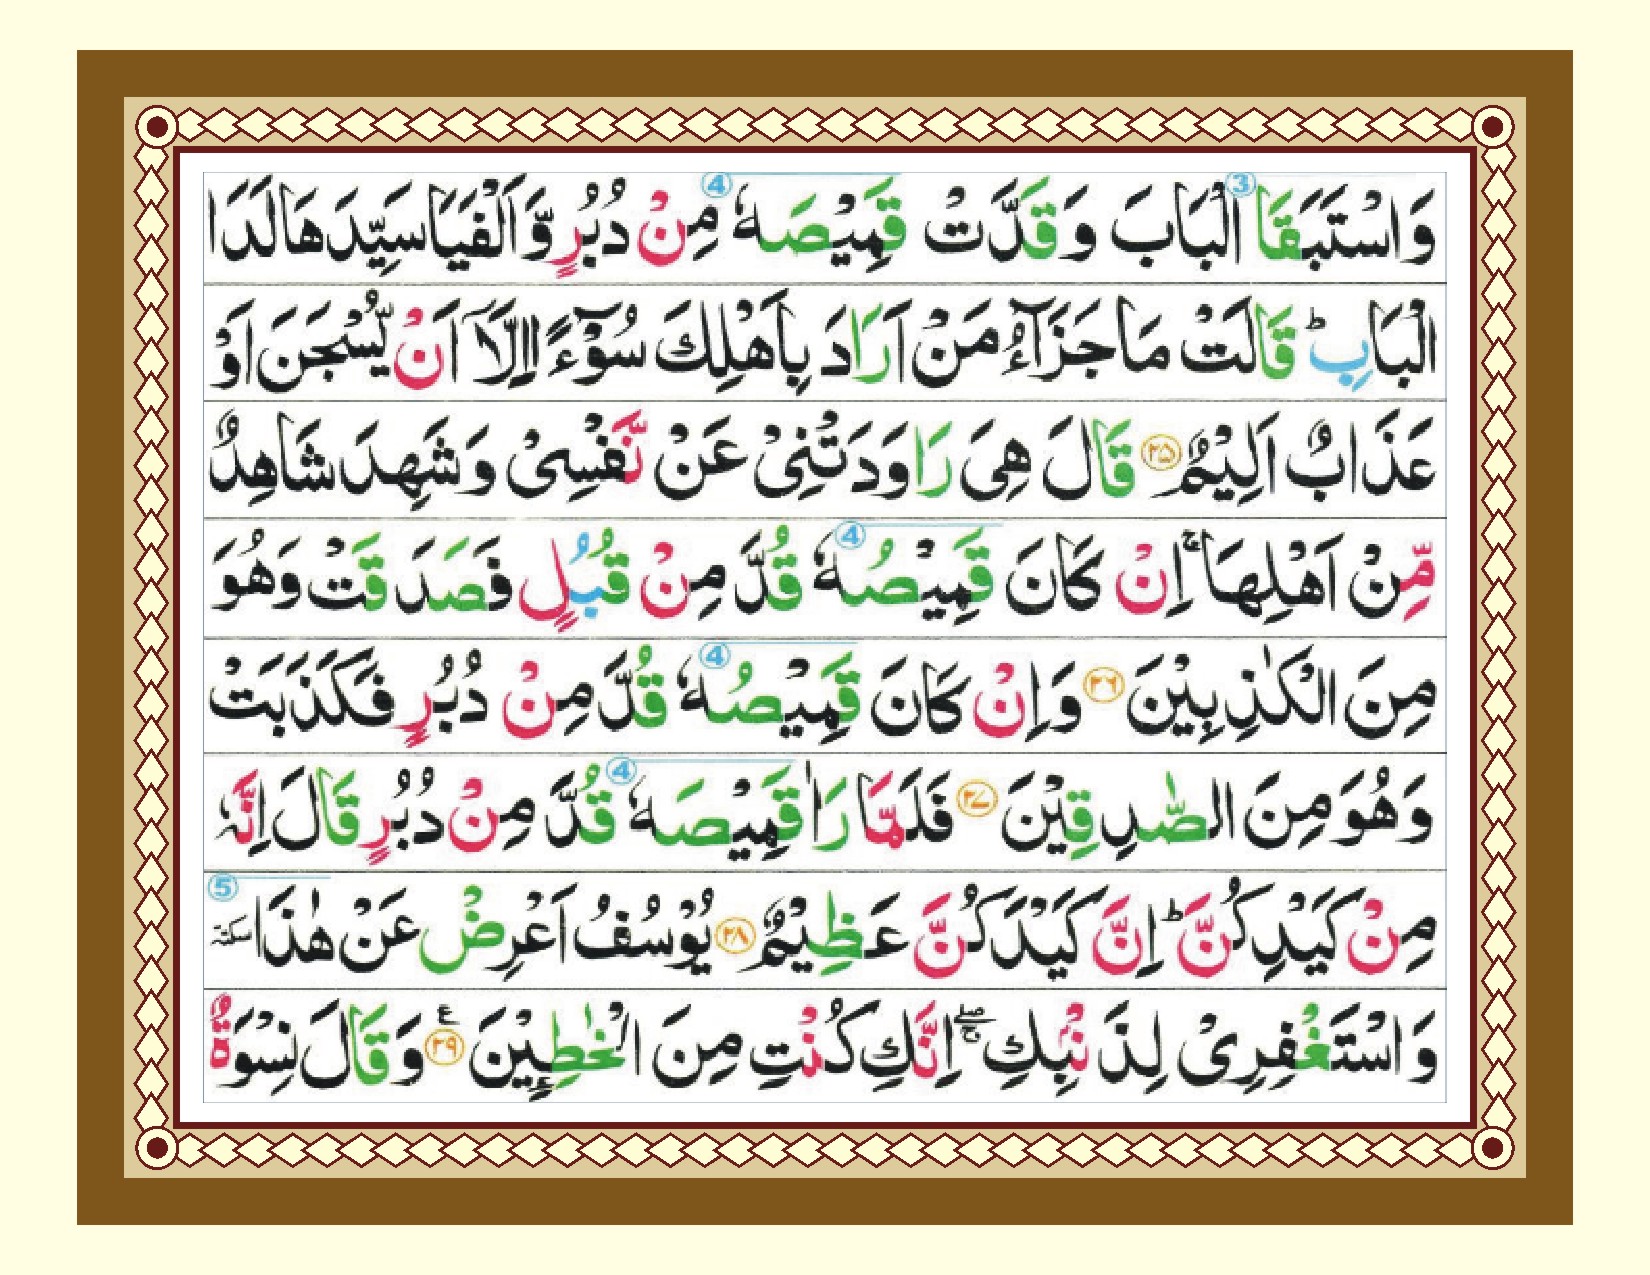 وَاسْتَبَقَا 3 الْبَابَ وَقَدَّتْ قَمِيْصَهٗ 4 مِنْ دُبُرٍ وَّاَلْفَيَا سَيِّدَهَا لَدَا
الْبَابِ ؕ قَالَتْ مَا جَزَآءُ مَنْ اَرَادَ بِاَهْلِكَ سُوْٓءًا اِلَّاۤ اَنْ يُّسْجَنَ اَوْ
عَذَابٌ اَلِيْمٌ ۲۵ قَالَ هِىَ رَاوَدَتْنِىْ عَنْ نَّفْسِىْ وَشَهِدَ شَاهِدٌ
مِّنْ اَهْلِهَا ۚ اِنْ كَانَ قَمِيْصُهٗ 4 قُدَّ مِنْ قُبُلٍ فَصَدَقَتْ وَهُوَ
مِنَ الْكٰذِبِيْنَ ۲۶ وَاِنْ كَانَ قَمِيْصُهٗ 4 قُدَّ مِنْ دُبُرٍ فَكَذَبَتْ
وَهُوَ مِنَ الصّٰدِقِيْنَ ۲۷ فَلَمَّا رَاٰ قَمِيْصَهٗ 4 قُدَّ مِنْ دُبُرٍ قَالَ اِنَّهٗ
مِنْ كَيْدِكُنَّ ؕ اِنَّ كَيْدَكُنَّ عَظِيْمٌ ۲۸ يُوْسُفُ اَعْرِضْ عَنْ هٰذَا سكتة 5
وَاسْتَغْفِرِىْ لِذَنْۢبِكِ ۖۚ اِنَّكِ كُنْتِ مِنَ الْخٰطِـِٕيْنَ ۲۹ ع وَقَالَ نِسْوَةٌ